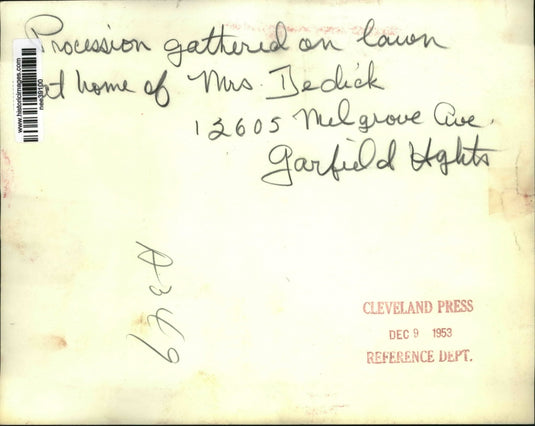 Procession gathered on lawn
at home of Mrs. Bedick
12605 Melgrove Ave.
Garfield Hghts
A3469
CLEVELAND PRESS
DEC 9 1953
REFERENCE DEPT.
www.historicimages.com